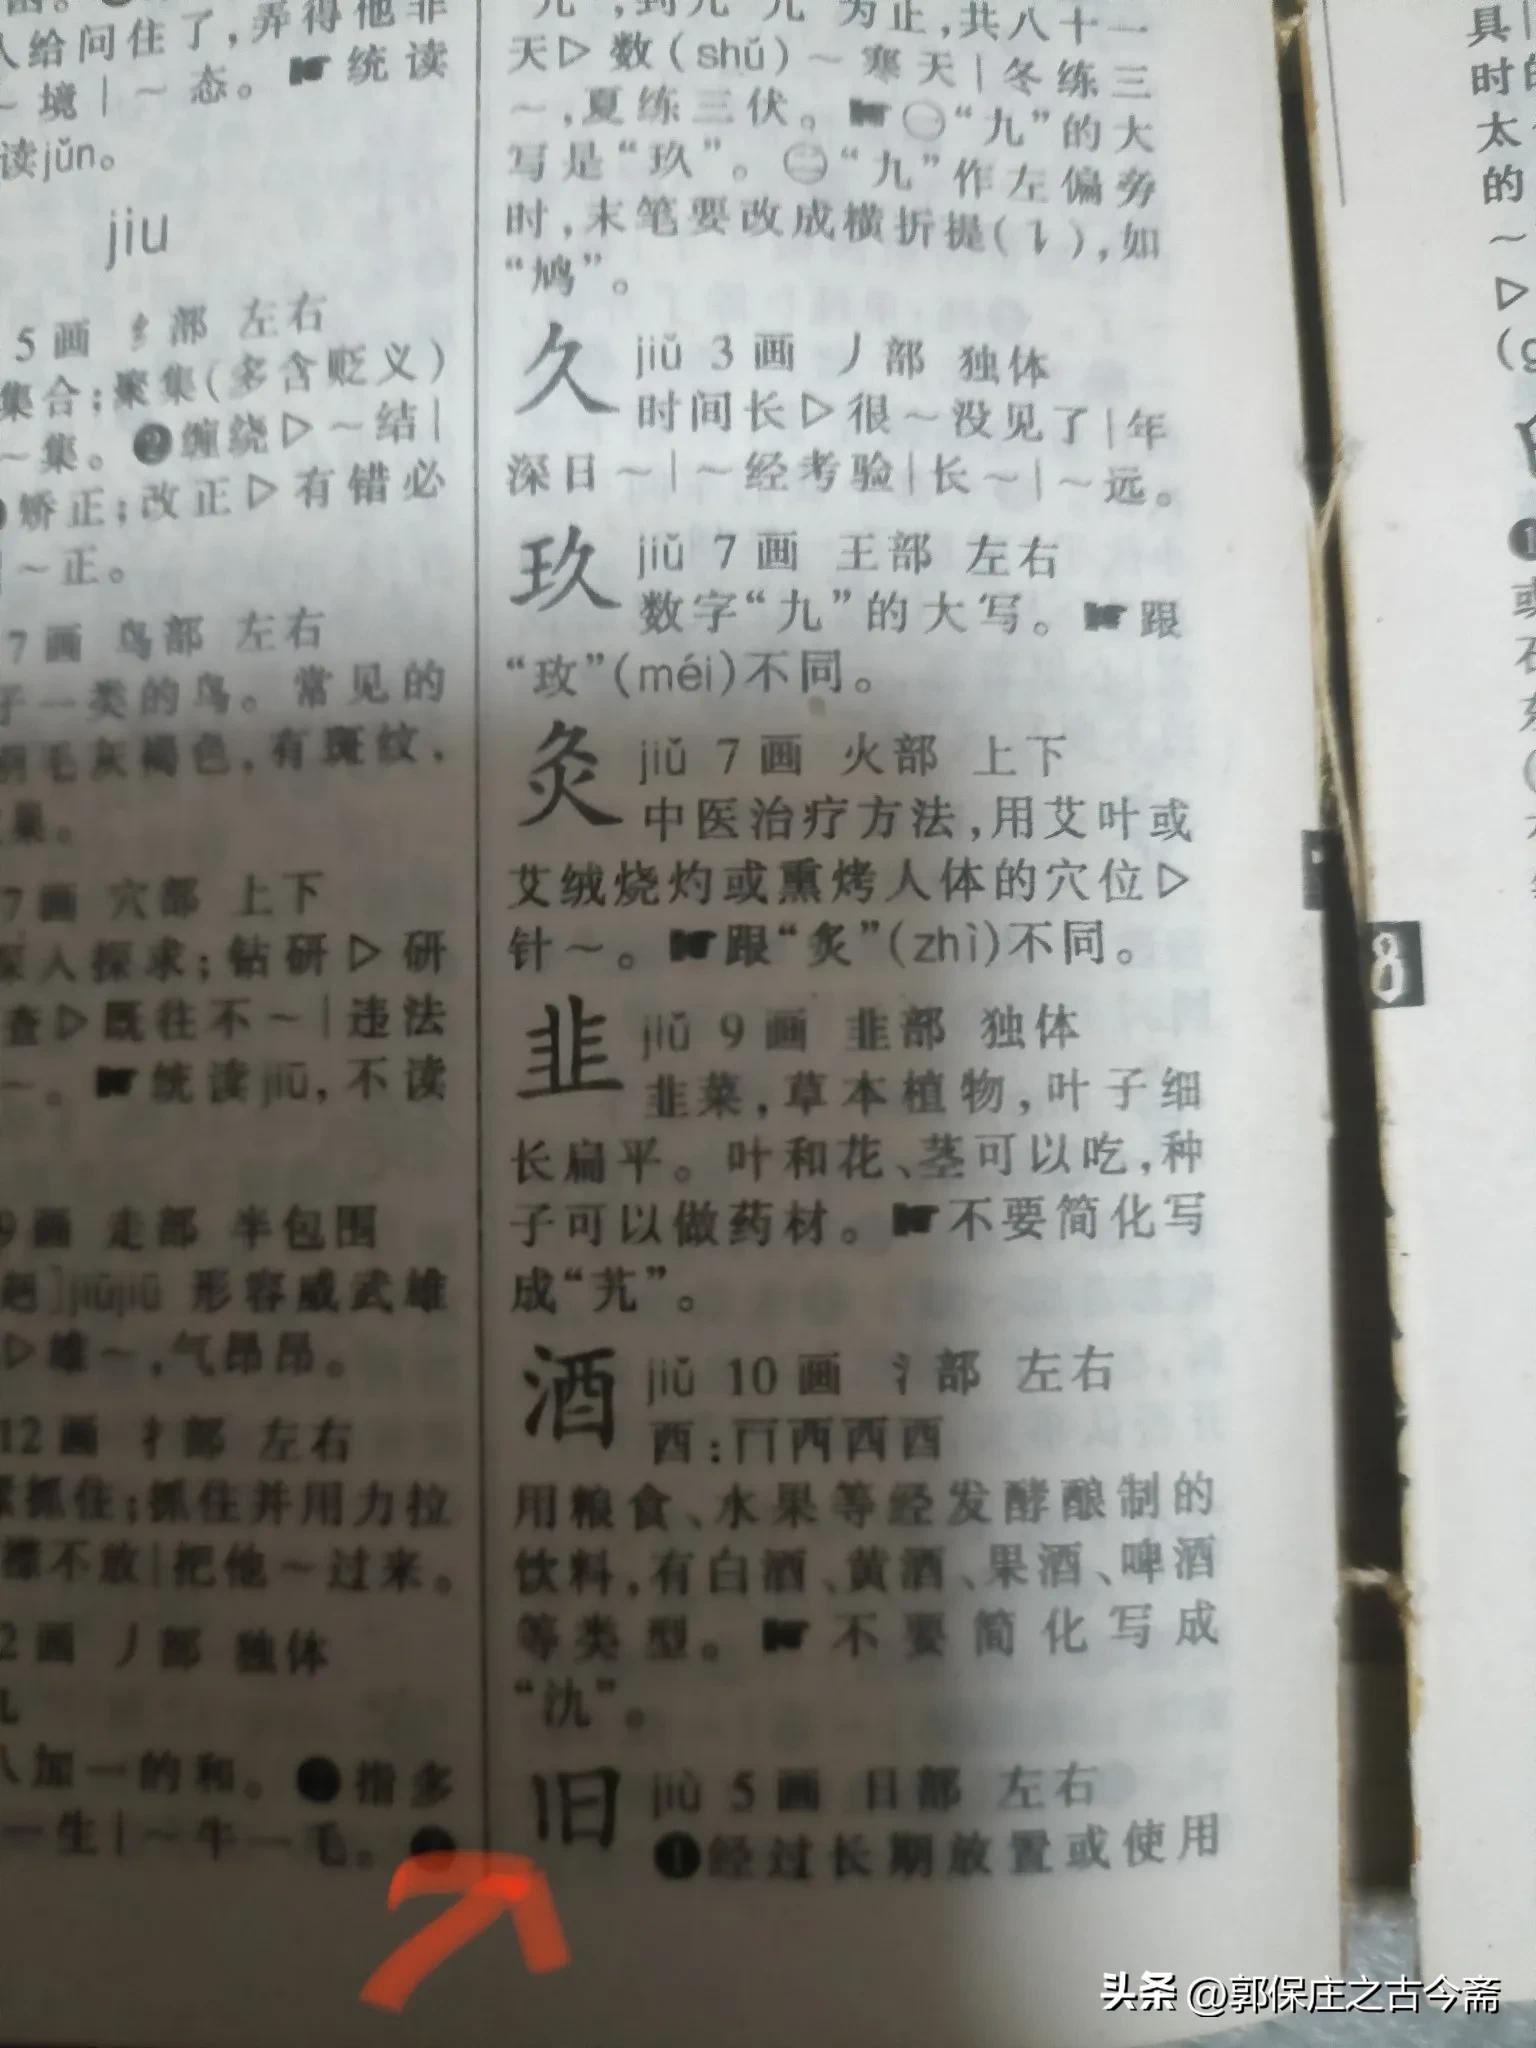 人给问住了，弄得他非
～境|～态。☛统读
读jǔn。
jiu
5画 纟部 左右
集合；聚集(多含贬义)
～集。❷缠绕▷～结|
矫正；改正▷有错必
|～正。
7画 鸟部 左右
子一类的鸟。常见的
羽毛灰褐色，有斑纹，
果。
7画 穴部 上下
深入探求；钻研▷研
查▷既往不～|违法
～。☛统读jiū，不读
9画 走部 半包围
赳]jiūjiū 形容威武雄
▷雄～，气昂昂。
12画 扌部 左右
紧抓住；抓住并用力拉
不放|把他～过来。
2画 丿部 独体
九
八加一的和。❷指多
一生|～牛一毛。❸
“九”，到九“九”为止，共八十一
天▷数(shǔ)～寒天|冬练三
～，夏练三伏。☛㊀“九”的大
写是“玖”。㊁“九”作左偏旁
时，末笔要改成横折提(㇊)，如
“鸠”。
久 jiǔ 3画 丿部 独体
时间长▷很～没见了|年
深日～|～经考验|长～|～远。
玖 jiǔ 7画 王部 左右
数字“九”的大写。☛跟
“玫”(méi)不同。
灸 jiǔ 7画 火部 上下
中医治疗方法，用艾叶或
艾绒烧灼或熏烤人体的穴位▷
针～。☛跟“炙”(zhì)不同。
韭 jiǔ 9画 韭部 独体
韭菜，草本植物，叶子细
长扁平。叶和花、茎可以吃，种
子可以做药材。☛不要简化写
成“艽”。
酒 jiǔ 10画 氵部 左右
酉：
用粮食、水果等经发酵酿制的
饮料，有白酒、黄酒、果酒、啤酒
等类型。☛不要简化写成
“氿”。
旧 jiù 5画 日部 左右
❶经过长期放置或使用
具|
时的
太
的
～
▷
(g
❶
或
8
头条 @郭保庄之古今斋